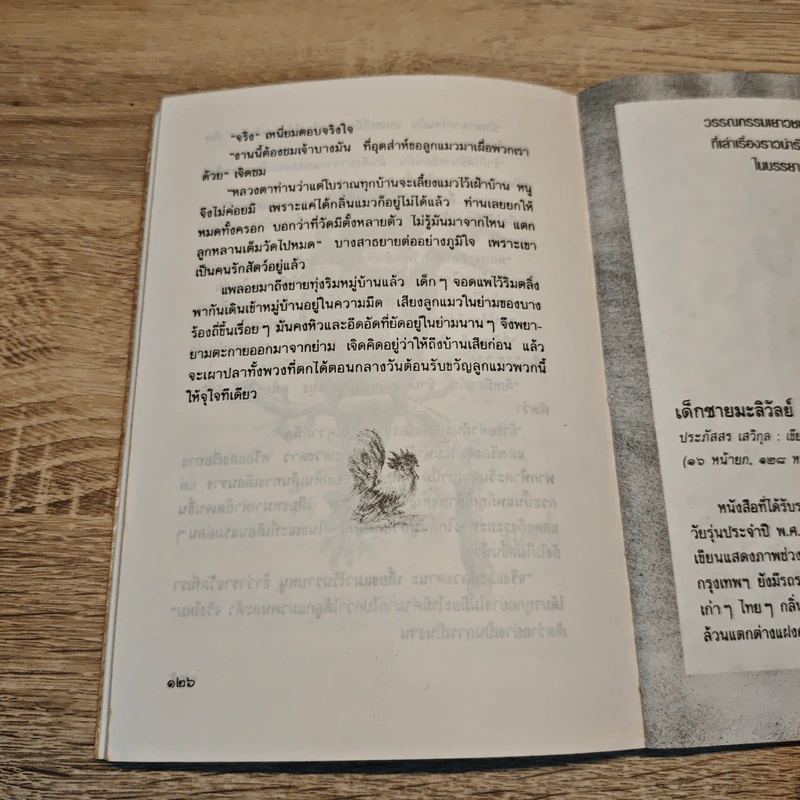 "จริง" เหนี่ยมตอบจริงใจ
"งานนี้ต้องชมเจ้าบางมัน ที่อุตส่าห์ขอลูกแมวมาเผื่อพวกเรา
ด้วย" เจิดชม
"หลวงตาท่านว่าแต่โบราณทุกบ้านจะเลี้ยงแมวไว้เฝ้าบ้าน หนู
จึงไม่ค่อยมี เพราะแค่ได้กลิ่นแมวก็อยู่ไม่ได้แล้ว ท่านเลยยกให้
หมดทั้งครอก บอกว่าที่วัดมีตั้งหลายตัว ไม่รู้มันมาจากไหน แตก
ลูกหลานเต็มวัดไปหมด" บางสาธยายต่ออย่างภูมิใจ เพราะเขา
เป็นคนรักสัตว์อยู่แล้ว
แพลอยมาถึงชายทุ่งริมหมู่บ้านแล้ว เด็กๆ จอดแพไว้ริมตลิ่ง
พากันเดินเข้าหมู่บ้านอยู่ในความมืด เสียงลูกแมวในย่ามของบาง
ร้องถี่ขึ้นเรื่อยๆ มันคงหิวและอึดอัดที่ยัดอยู่ในย่ามนานๆ จึงพยา-
ยามตะกายออกมาจากย่าม เจิดคิดอยู่ว่าให้ถึงบ้านเสียก่อน แล้ว
จะเผาปลาทั้งพวงที่ตกได้ตอนกลางวันต้อนรับขวัญลูกแมวพวกนี้
ให้จุใจทีเดียว
๑๒๖
วรรณกรรมเยาวช
ที่เล่าเรื่องราวน่ารั
ในบรรยา
เด็กชายมะลิวัลย์
ประภัสสร เสวิกุล : เขีย
(๑๖ หน้ายก, ๑๒๘ ห
หนังสือที่ได้รับร
วัยรุ่นประจำปี พ.ศ.
เขียนแสดงภาพช่วง
กรุงเทพฯ ยังมีรถร
เก่าๆ ไทยๆ กลิ่
ล้วนแตกต่างแฝง